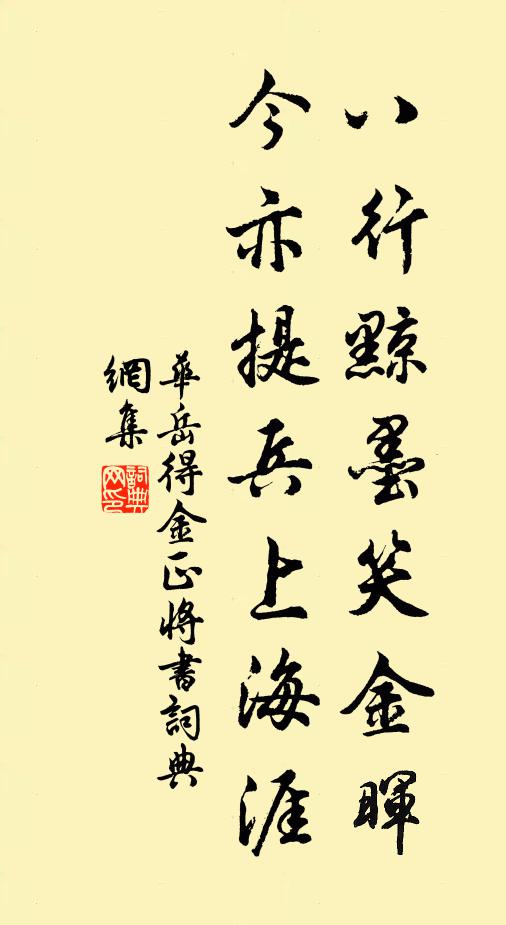 八行黥墨笑金暉
今亦提兵上海涯
華岳得金正將書詞典
網集
詞典
网印